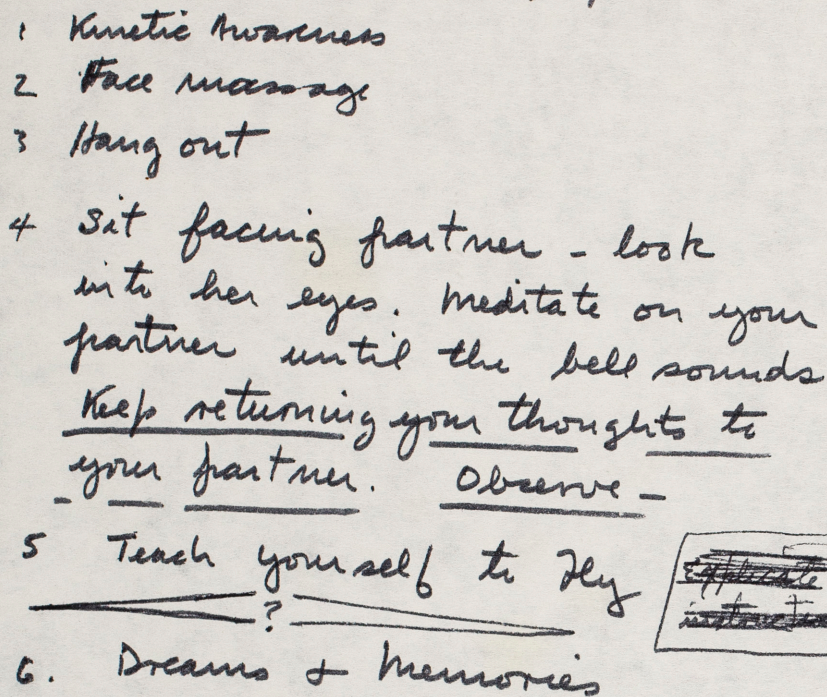 1 Kinetic Awareness
2 Face massage
3 Hang out
4 Sit facing partner - look
into her eyes. Meditate on your
partner until the bell sounds
Keep returning your thoughts to
your partner. Observe -
5 Teach yourself to Fly
?
6. Dreams & Memories